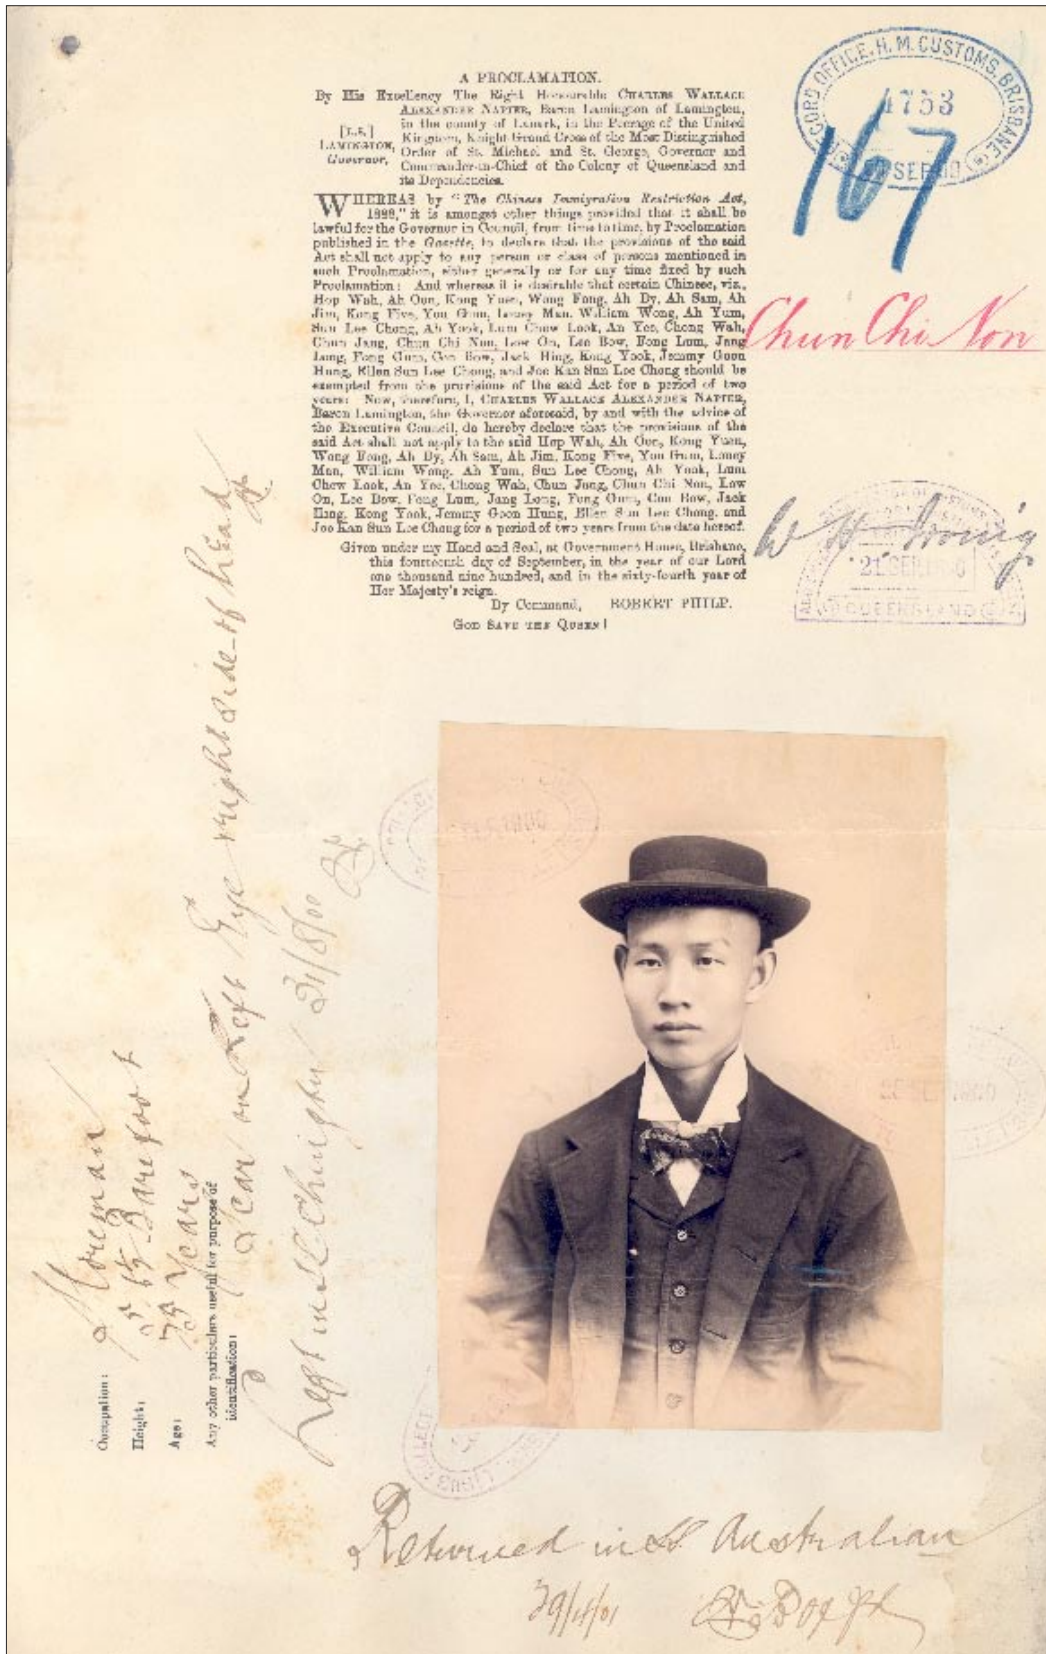 A PROCLAMATION.
By His Excellency The Right Honourable CHARLES WALLACE
ALEXANDER NAPIER, Baron Lamington of Lamington,
in the county of Lanark, in the Peerage of the United
[L.S.] Kingdom, Knight Grand Cross of the Most Distinguished
LAMINGTON, Order of St. Michael and St. George, Governor and
Governor, Commander-in-Chief of the Colony of Queensland and
its Dependencies.
WHEREAS by "The Chinese Immigration Restriction Act,
1888," it is amongst other things provided that it shall be
lawful for the Governor in Council, from time to time, by Proclamation
published in the Gazette, to declare that the provisions of the said
Act shall not apply to any person or class of persons mentioned in
such Proclamation, either generally or for any time fixed by such
Proclamation: And whereas it is desirable that certain Chinese, viz.,
Hop Wah, Ah Oon, Kong Yuen, Wong Fong, Ah By, Ah Sam, Ah
Jim, Kong Five, You Gum, Loney Man, William Wong, Ah Yum,
Sun Lee Chong, Ah Yook, Lum Chow Look, An Yee, Chong Wah,
Chun Jang, Chun Chi Non, Low On, Lee Bow, Fong Lum, Jang
Long, Fong Gum, Con Bow, Jack Hing, Kong Yook, Jemmy Goon
Hung, Ellen Sun Lee Chong, and Joe Kan Sun Lee Chong should be
exempted from the provisions of the said Act for a period of two
years: Now, therefore, I, CHARLES WALLACE ALEXANDER NAPIER,
Baron Lamington, the Governor aforesaid, by and with the advice of
the Executive Council, do hereby declare that the provisions of the
said Act shall not apply to the said Hop Wah, Ah Oon, Kong Yuen,
Wong Fong, Ah By, Ah Sam, Ah Jim, Kong Five, You Gum, Loney
Man, William Wong, Ah Yum, Sun Lee Chong, Ah Yook, Lum
Chow Look, An Yee, Chong Wah, Chun Jang, Chun Chi Non, Low
On, Lee Bow, Fong Lum, Jang Long, Fong Gum, Con Bow, Jack
Hing, Kong Yook, Jemmy Goon Hung, Ellen Sun Lee Chong, and
Joe Kan Sun Lee Chong for a period of two years from the date hereof.
Given under my Hand and Seal, at Government House, Brisbane,
this fourteenth day of September, in the year of our Lord
one thousand nine hundred, and in the sixty-fourth year of
Her Majesty's reign.
By Command, ROBERT PHILP.
GOD SAVE THE QUEEN!
RECORD OFFICE, H. M. CUSTOMS, BRISBANE
4753
SEP
167
Chun Chi Non
W H Irving
21 SEP 1900
QUEENSLAND
Occupation: Storeman
Height: Barefoot
Age: Years
Any other particulars useful for purpose of
identification: Scar on Left Eye right side of head
Left in 31/8/00
Returned in Australian
29/4/01